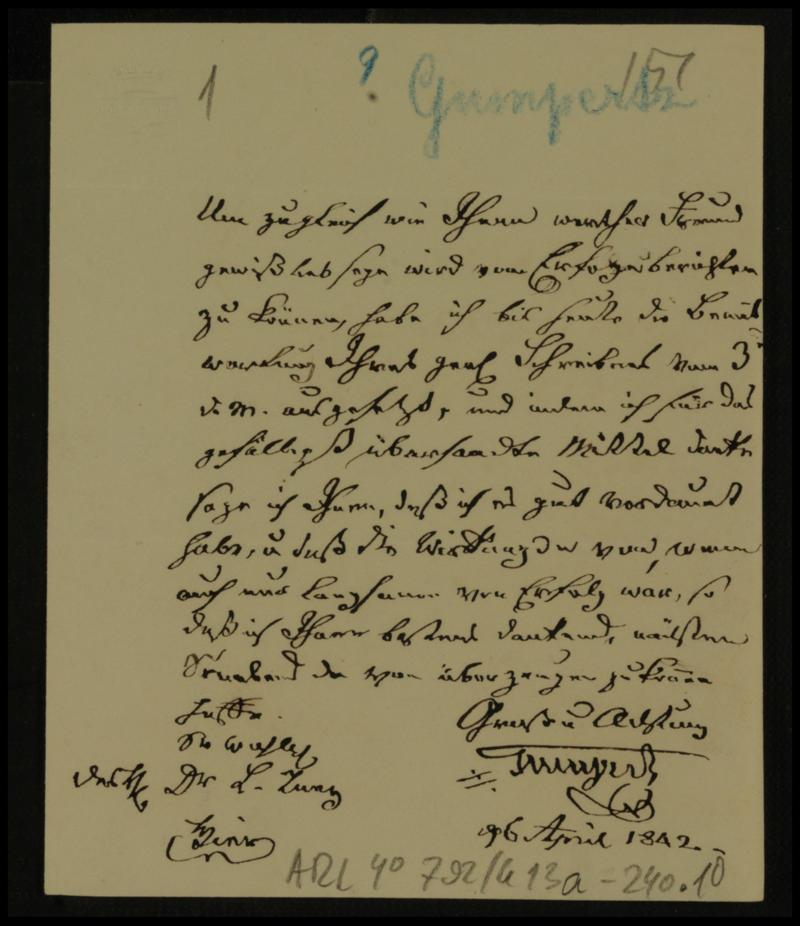 1 9 Gumpertz 151
Um zugleich wie Ihnen werther Freund
gewiß lieb sein wird vom Erfolge berichten
zu können, habe ich bis heute die Beant
wortung Ihres geeh Schreibens vom 3
d. M. ausgesetzt, und indem ich für das
gefälligst übersandte Mittel danke
sage ich Ihnen, daß ich es gut verdaut
habe, u daß die Wirkung von, wenn
auch nur langsamen Erfolg war, so
daß ich Ihnen bestens dankend, nächsten
Sonabend Sie von überzeugen zu könen
hoffe.
Gruß u Achtung
Sr Wohlg
Dr L. Zunz
Gumpertz
Hier
6 April 1842.
ARC 4° 792/G 13a - 240.10